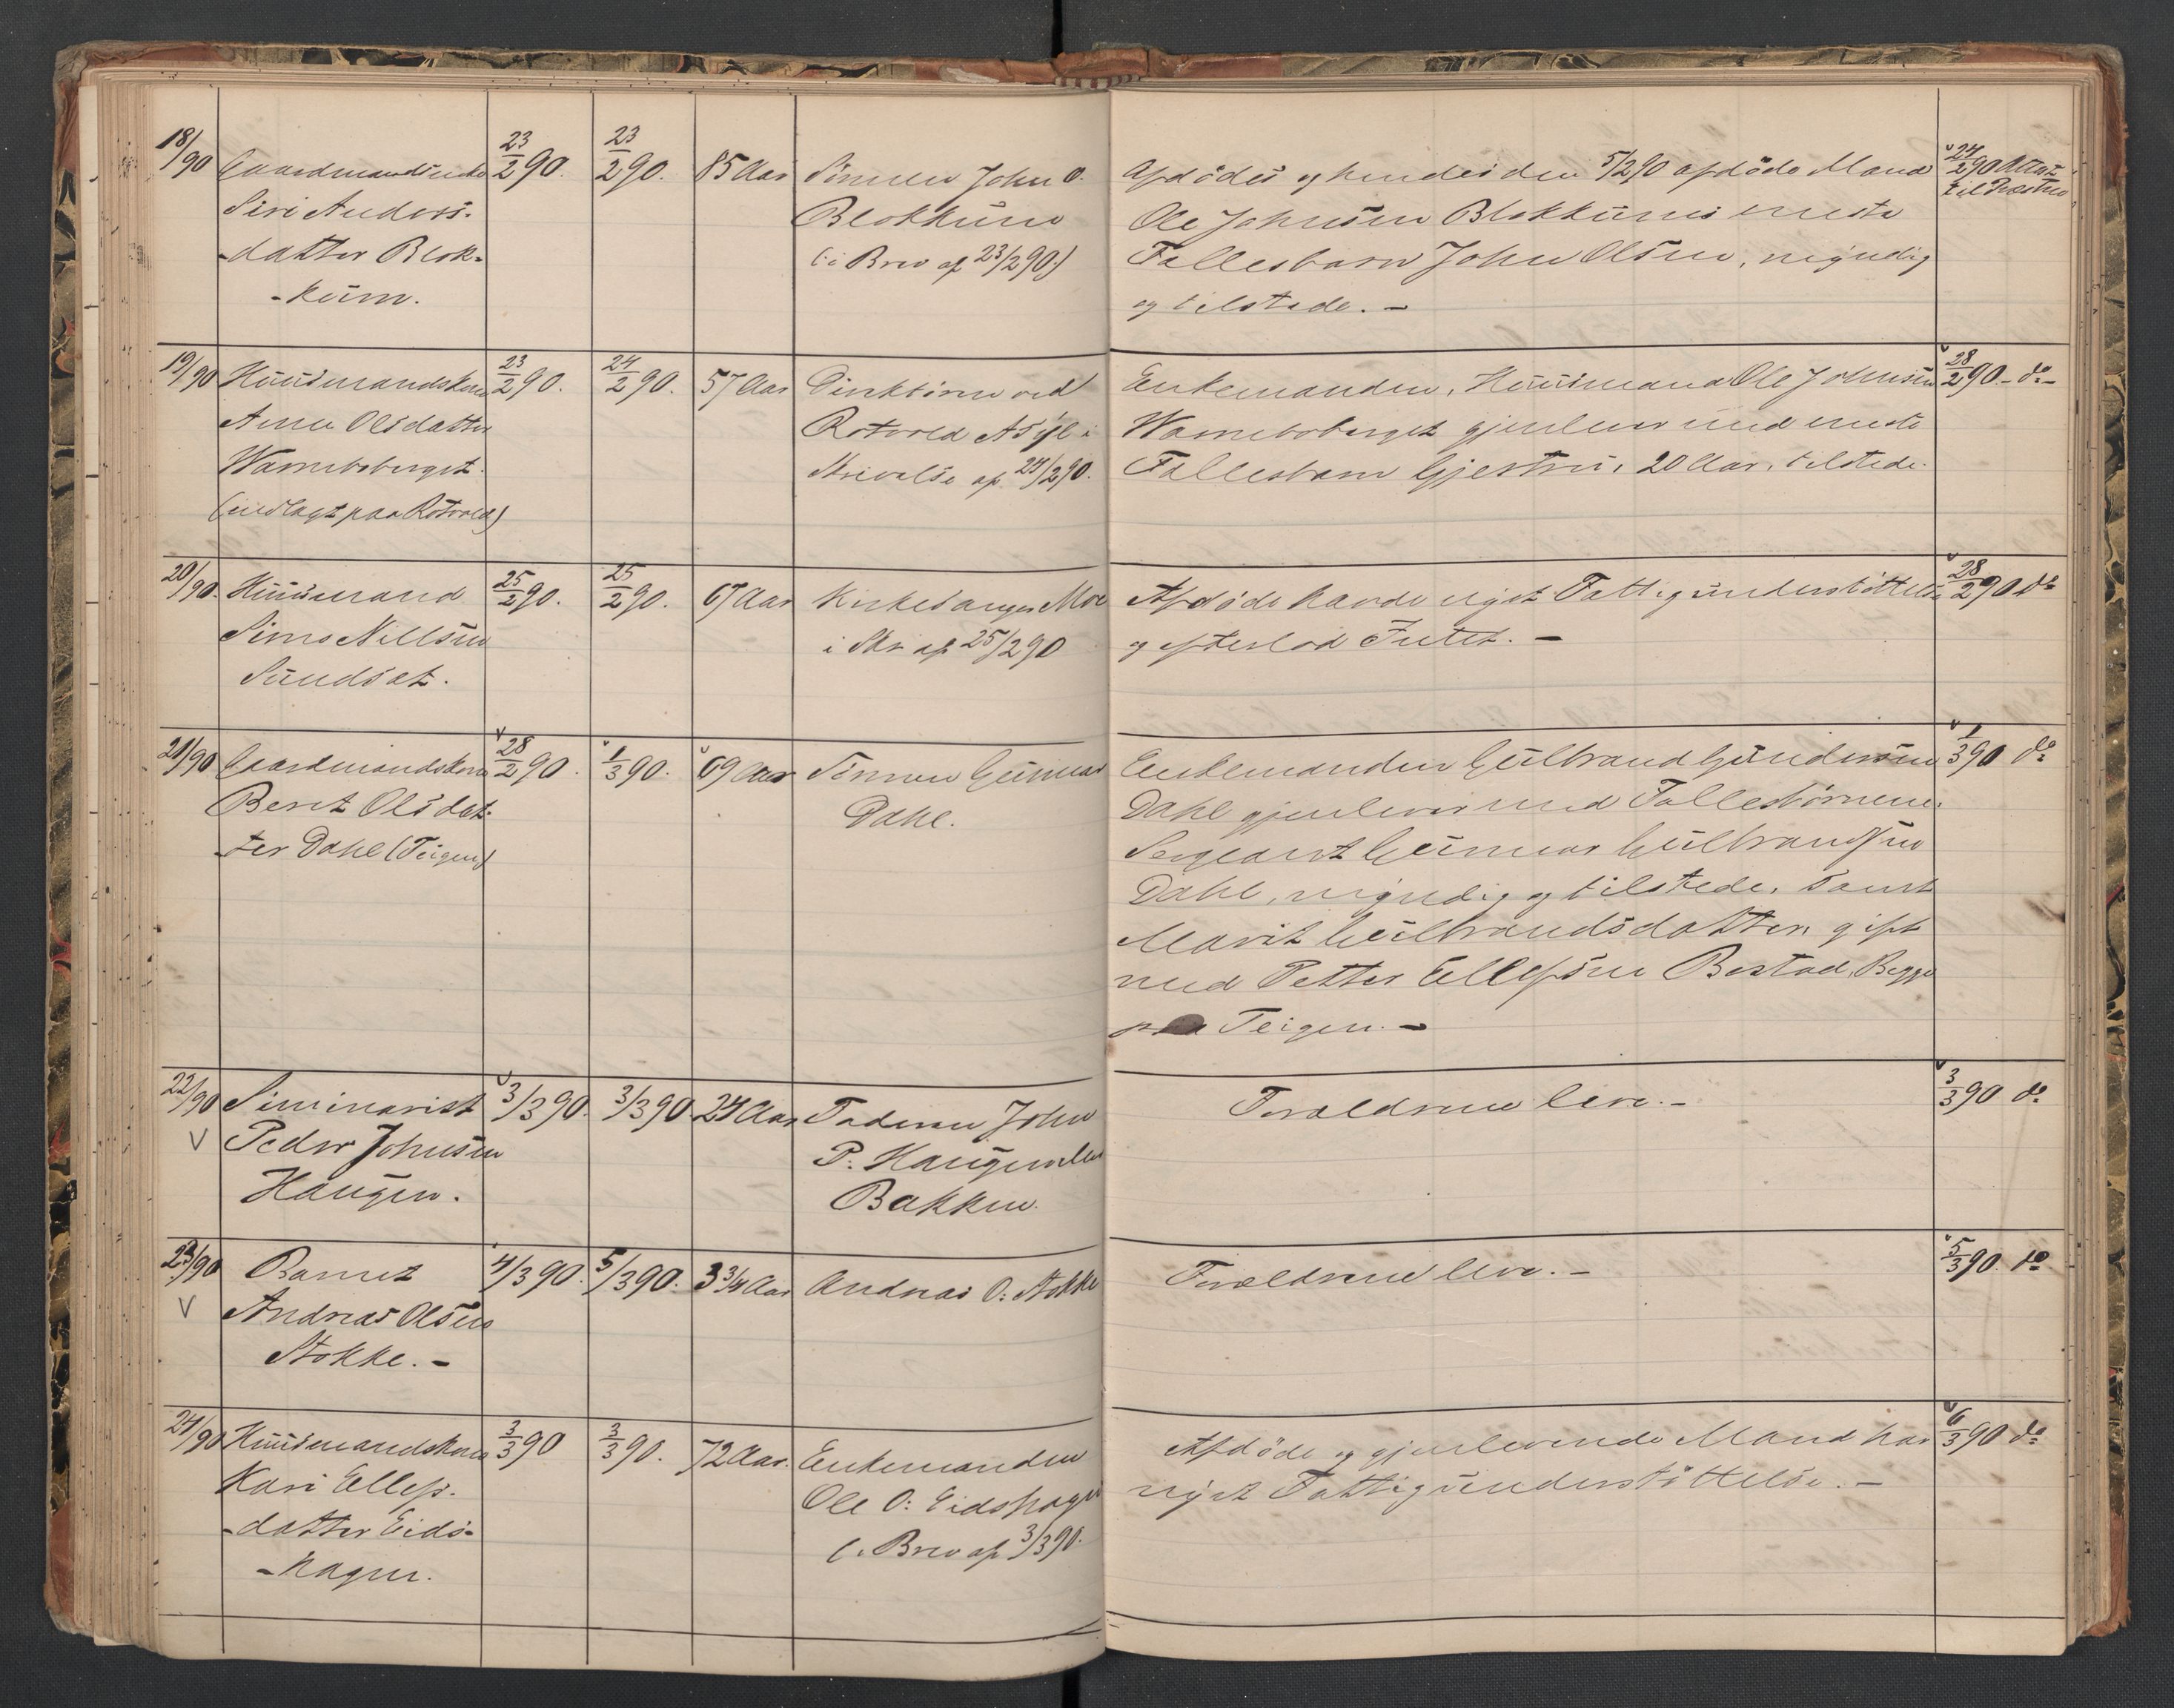 18/90 Gaardmandsenke 23/2 90. 23/2 90. 85 Aar Sönnen John O. Afdödes og hendes den 5/2 90 afdöde Mand 24/2 90 Attest
Siri Anders- Blokkum Ole Johnsen Blokkums eneste til Præsten
-datter Blok- (: i Brev af 23/2 90) Fællesbarn John Olsen, myndig
-kum. og tilstede. -
19/90 Huusmandskone 23/2 90. 24/2 90. 57 Aar Direktören ved Enkemanden, Huusmand Ole Johnsen 28/2 90. - do -
Ane Olsdatter Rotvold Asyl i gjenlever med eneste
Skrivelse af 24/2 90. Fællesbarn 20 Aar, tilstede.
(indlagt paa Rotvold)
20/90. Huusmand 25/2 90. 25/2 90. 67 Aar Kirkesanger Moe Afdöde havde nydt Fattigunderstöttelse 28/2 90 do
Sims Nillsen i Skr af 25/2 90 og efterlod Intet. -
Sundset.
21/90 Gaardmandskone 28/2 90. 1/3 90. 69 Aar Sönnen Gunnar Enkemanden Gulbrand Gundersen 1/3 90 do
Berit Olsdat- Dahl. Dahl gjenlever med Fællesbörnene:
-ter Dahl (Teigen) Sergeant Gunnar Gulbrandsen
Dahl, myndig og tilstede, samt
Marit Gulbrandsdatter, gift
med Petter Ellefsen Bostad, Begge
paa Teigen. -
22/90 Seminarist 3/3 90. 3/3 90. 24 Aar Faderen John Forældrene leve. - 3/3 90 do
V Peder Johnsen P. Haugen eller
Haugen. Bakken.
23/90 Barnet 4/3 90. 5/3 90. 3 3/4 Aar Andreas O: Stokke Forældrene leve. - 5/3 90. do
V Andreas Olsen
Stokke. -
24/90 Huusmandskone 3/3 90 3/3 90. 72 Aar. Enkemanden Afdöde og gjenlevende Mand har 6/3 90 do
Kari Ellefs- Ole O: Eidshagen nydt Fattigunderstöttelse. -
-datter Eids- (i Brev af 3/3 90.
-hagen.